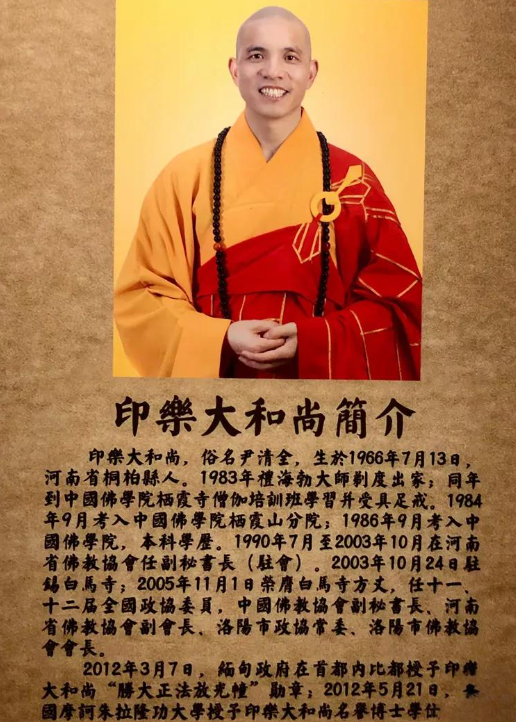 印樂大和尚簡介
印樂大和尚，俗名尹清全，生於1966年7月13日，
河南省桐柏縣人。1983年禮海勃大師剃度出家；同年
到中國佛學院栖霞寺僧伽培訓班學習并受具足戒。1984
年9月考入中國佛學院栖霞山分院；1986年9月考入中
國佛學院，本科學歷。1990年7月至2003年10月在河南
省佛教協會任副秘書長（駐會）。2003年10月24日駐
錫白馬寺；2005年11月1日榮膺白馬寺方丈，任十一、
十二届全國政協委員，中國佛教協會副秘書長、河南
省佛教協會副會長、洛陽市政協常委、洛陽市佛教協
會會長。
2012年3月7日，緬甸政府在首都内比都授予印樂
大和尚“勝大正法放光幢”勛章；2012年5月21日，
國摩訶朱拉隆功大學授予印樂大和尚名譽博士學位